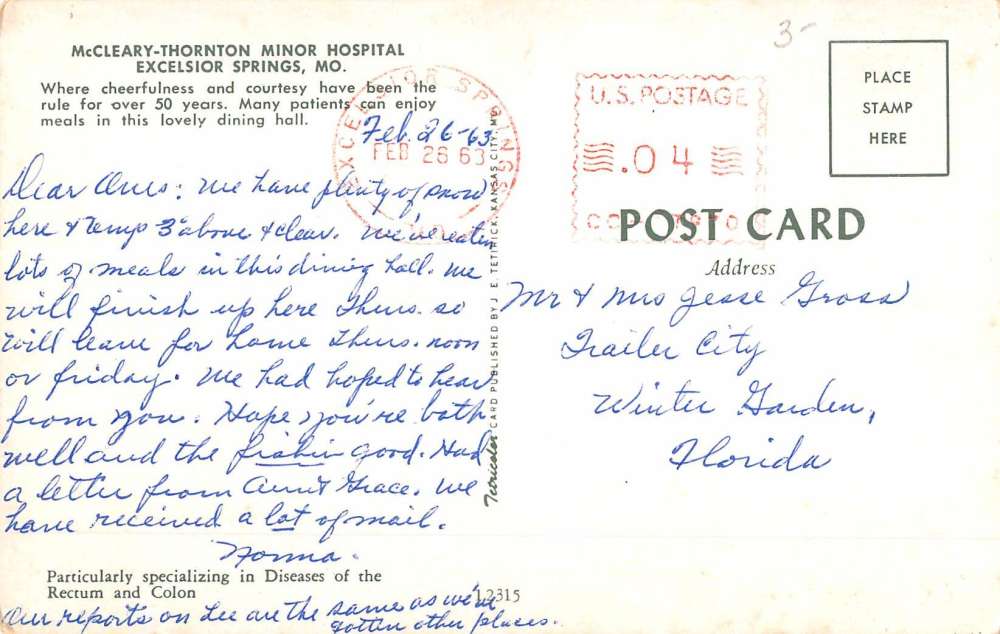 McCLEARY-THORNTON MINOR HOSPITAL
EXCELSIOR SPRINGS, MO.
Where cheerfulness and courtesy have been the
rule for over 50 years. Many patients can enjoy
meals in this lovely dining hall.
Feb. 26-63
Dear Ones: We have plenty of snow
here & temp 3° above & clear. We've eaten
lots of meals in this dining hall. We
will finish up here Thurs. so
will leave for home Thurs. noon
or friday. We had hoped to hear
from you. Hope you're both
well and the fishin good. Had
a letter from Aunt Grace. We
have received a lot of mail.
Norma.
Particularly specializing in Diseases of the
Rectum and Colon
12315
Our reports on Lee are the same as we've
gotten other places.
Tetricolor CARD PUBLISHED BY J. E. TETIRICK, KANSAS CITY, MO.
EXCELSIOR SPRINGS
FEB 26 63
MO.
U.S. POSTAGE
.04
3-
PLACE
STAMP
HERE
POST CARD
Address
Mr & Mrs Jesse Gross
Trailer City
Winter Garden,
Florida